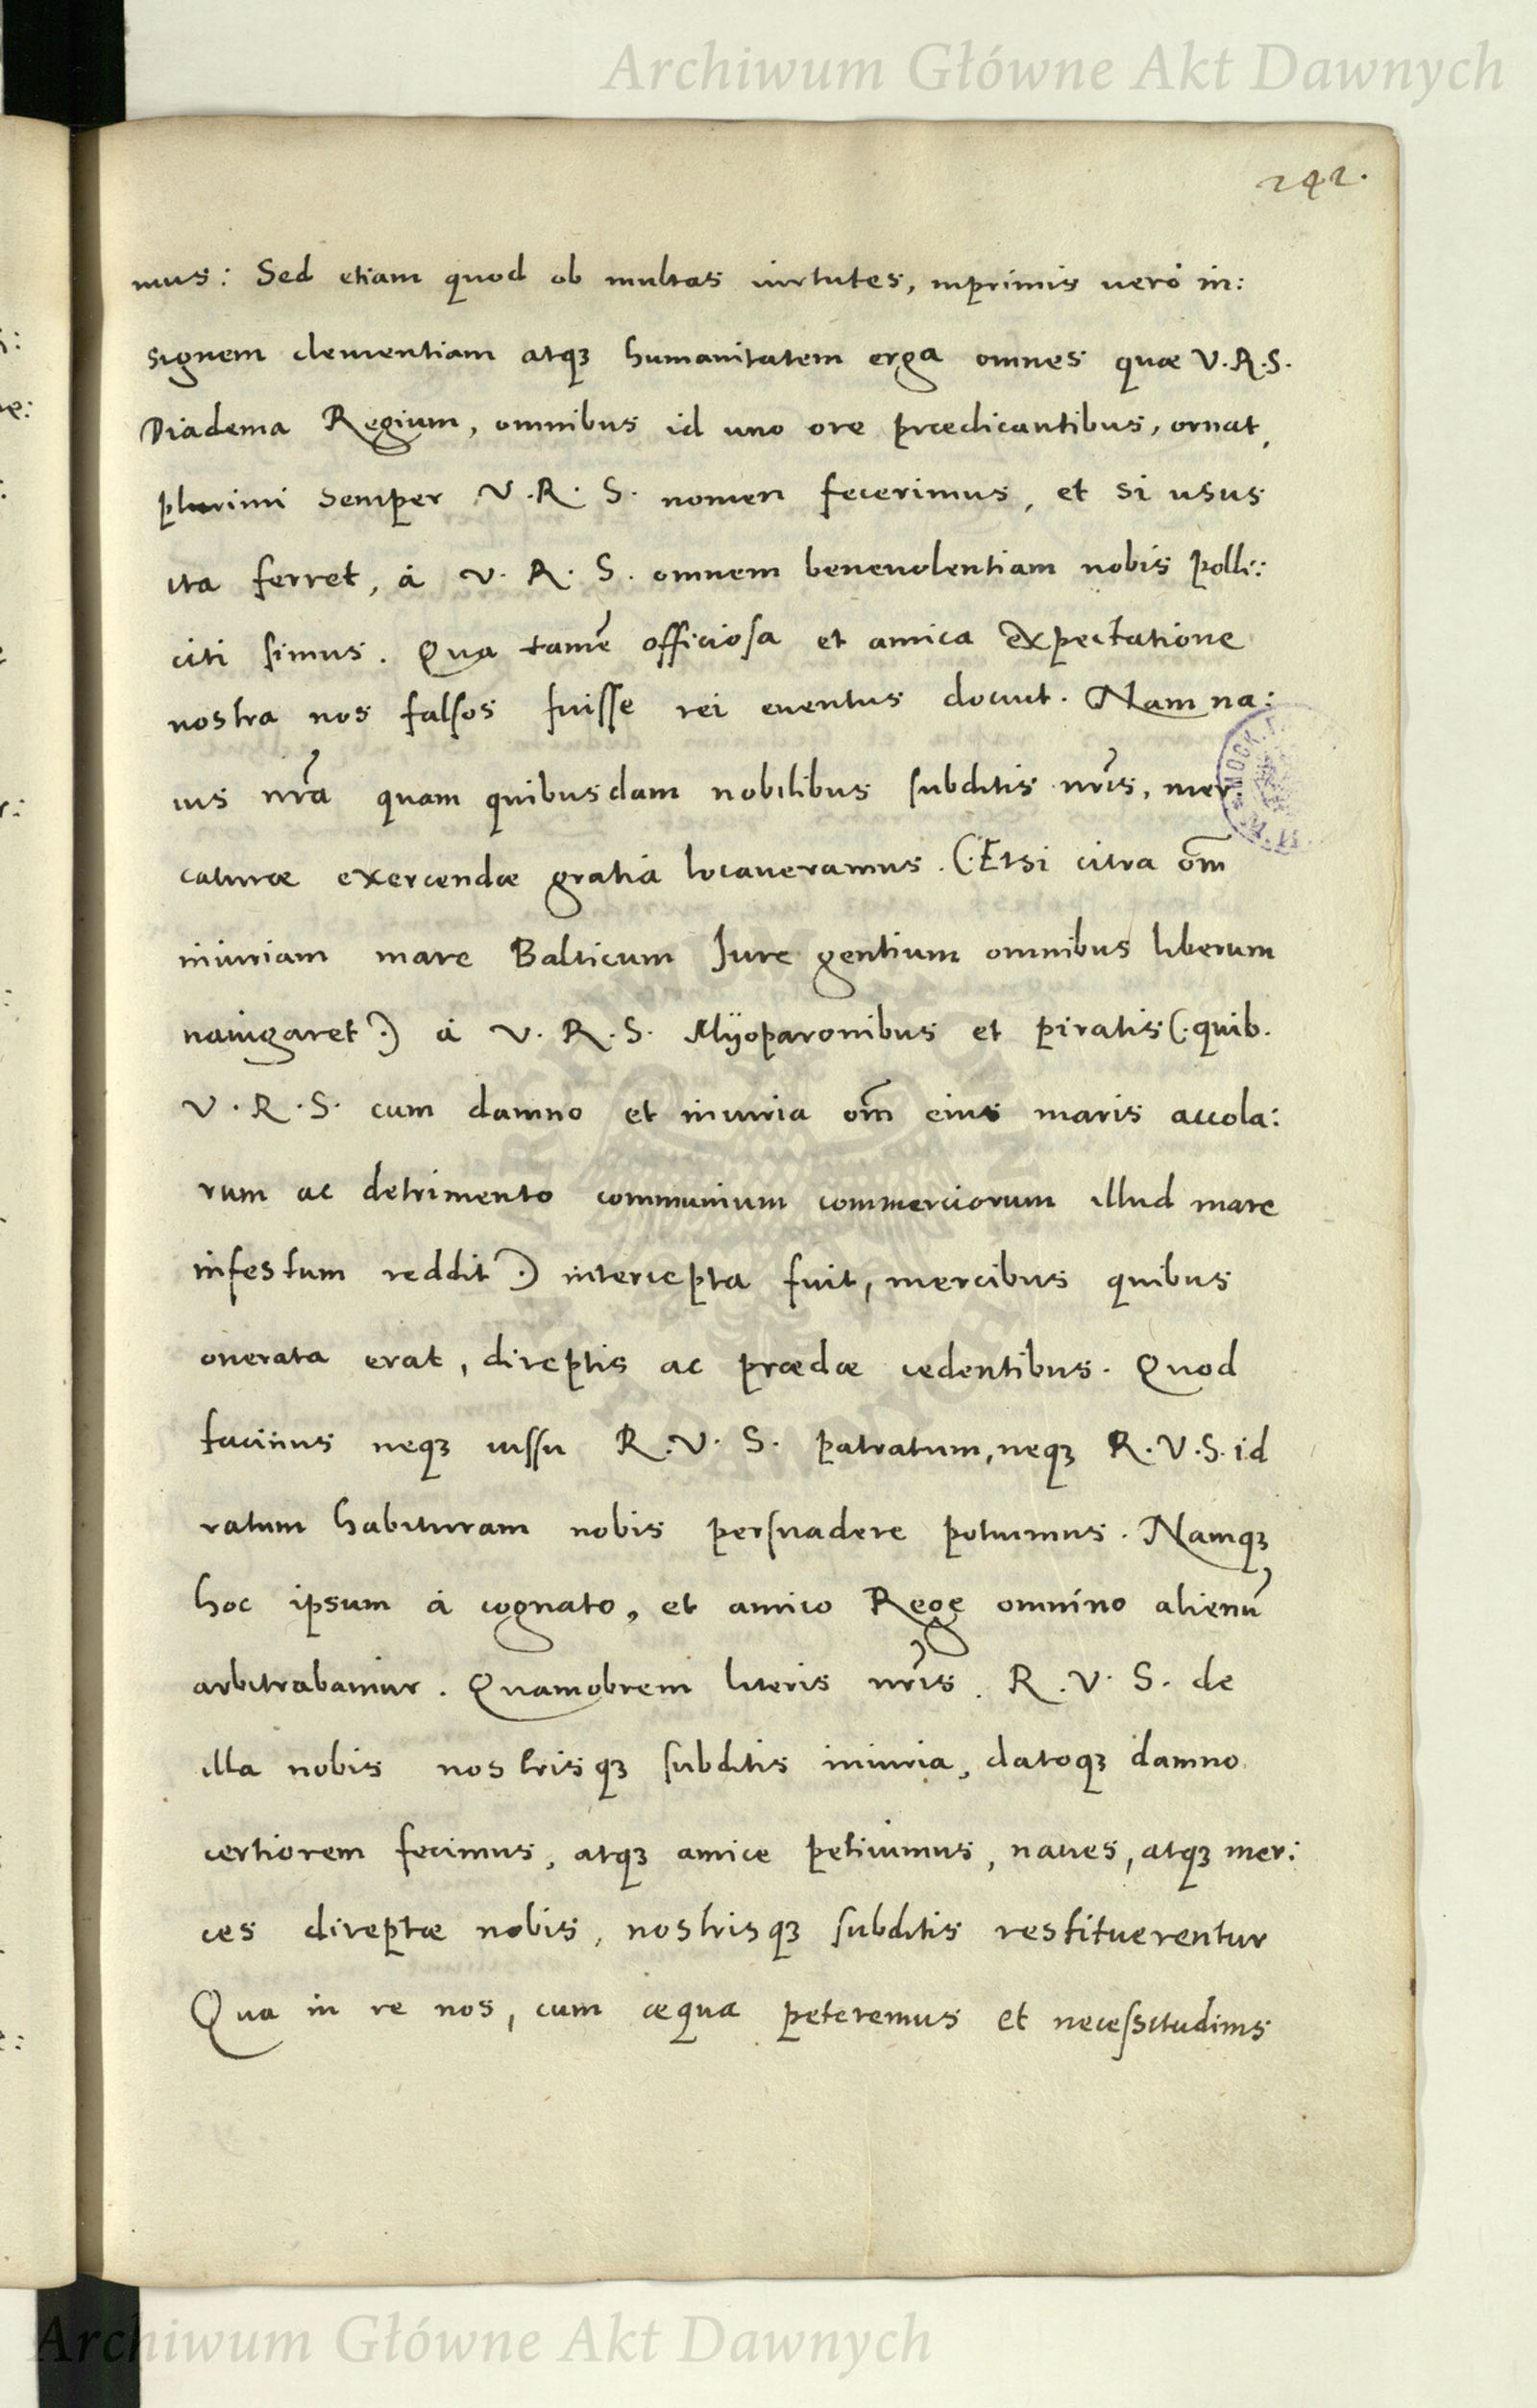 Archiwum Główne Akt Dawnych
242.
mus: Sed etiam quod ob multas uirtutes, inprimis uerò in:
signem clementiam atqꝫ humanitatem erga omnes quæ V.R.S.
Diadema Regium, omnibus id uno ore prædicantibus, ornat,
plurimi semper V.R.S. nomen fecerimus, et si usus
ita ferret, à V.R.S. omnem beneuolentiam nobis polli:
citi simus. Qua tamẽ officiosa et amica expectatione
nostra nos falsos fuisse rei euentus docuit. Nam na:
uis nrã quam quibusdam nobilibus subditis nris, mer:
caturæ exercendæ gratia locaueramus. (:Etsi citra om̃
iniuriam mare Balticum Jure gentium omnibus liberum
nauigaret:) à V.R.S. Myoparonibus et piratis (:quib.
V.R.S. cum damno et iniuria om̃ eius maris accola:
rum ac detrimento communium commerciorum illud mare
infestum reddit:) intercepta fuit, mercibus quibus
onerata erat, direptis ac prædæ cedentibus. Quod
facinus neqꝫ iussu R.V.S. patratum, neqꝫ R.V.S. id
ratum habituram nobis persuadere potuimus. Namqꝫ
hoc ipsum à cognato, et amico Rege omnino alienũ
arbitrabamur. Quamobrem literis nris. R.V.S. de
illa nobis nostrisqꝫ subditis iniuria, datoqꝫ damno
certiorem fecimus, atqꝫ amice petiuimus, naues, atqꝫ mer:
ces direptæ nobis, nostrisqꝫ subditis restituerentur
Qua in re nos, cum æqua peteremus et necessitudinis
Archiwum Główne Akt Dawnych